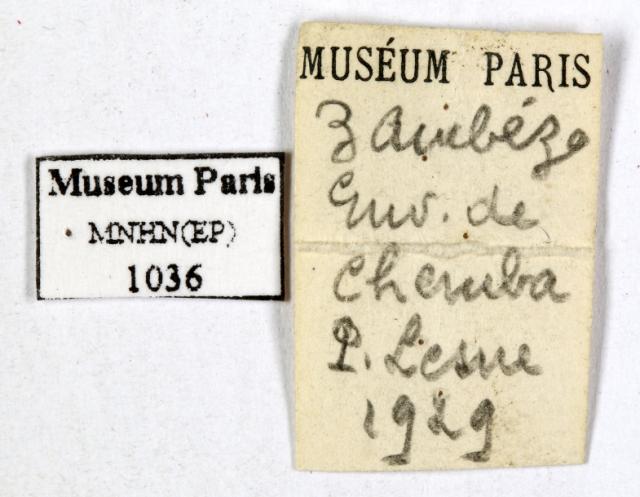 Museum Paris
MNHN(EP)
1036
MUSÉUM PARIS
Zambéze
Env. de
Chemba
P. Lesne
1929